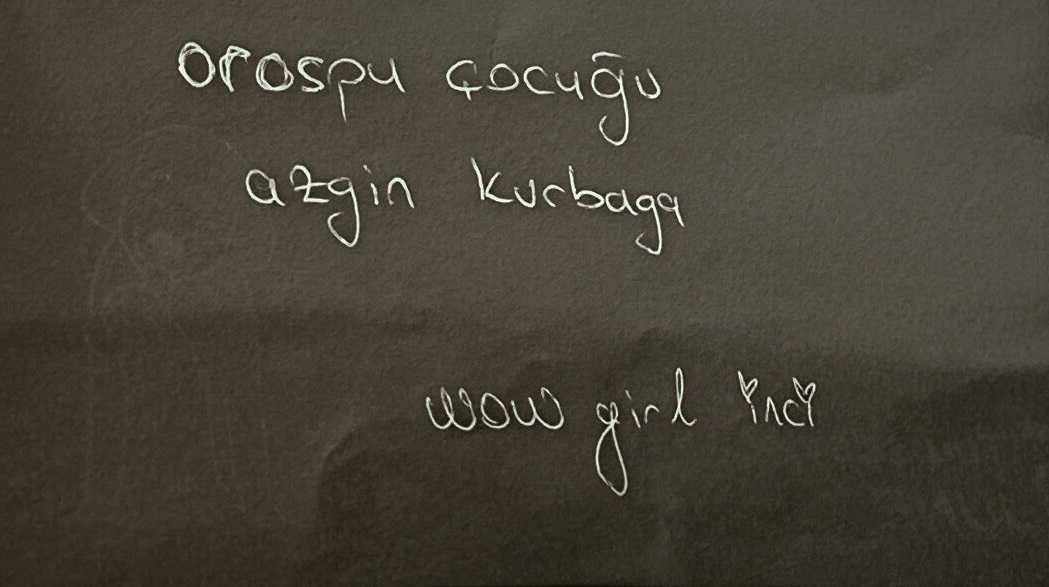 orospu çocuğu
azgin kurbaga
wow girl inci